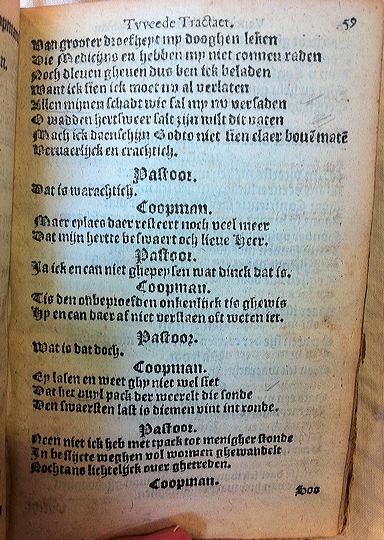 Tvveede Tractaet. 59
Van grooter droefheyt my dooghen leken
Die Medicijns en hebben my niet connen raden
Noch bleven gheven dus ben ick beladen
Want ick sien ick moet nv al verlaten
Allen mijnen schadt wie sal my nv versaden
O wadden hertsweer salt zijn wilt dit vaten
Mach ick daenschijn Godts niet sien claer bouē matē
Vervaerlijck en crachtich.
Pastoor.
Dat is warachtich.
Coopman.
Maer eylaes daer resteert noch veel meer
Dat mijn hertte beswaert och lieue Heer.
Pastoor.
Ja ick en can niet ghepeysen wat dinck dat is.
Coopman.
Tis den onbeproefden onkenlijck tis ghewis
Hy en can daer af niet verstaen oft weten iet.
Pastoor.
Wat is dat doch.
Coopman.
Ey lasen en weet ghy nier wel siet
Dat het vuyl pack der weerelt die sonde
Den swaersten last is diemen vint int ronde.
Pastoor.
Neen niet ick heb met tpack tot menigher stonde
In beslijcte weghen vol women ghewandelt
Nochtans lichtelijck ouer ghetreden.
Coopman.
Hoo